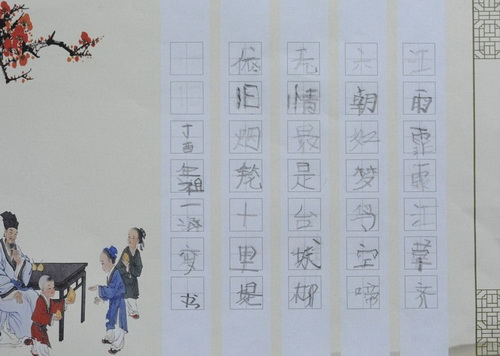 江雨霏霏江草齐
六朝如梦鸟空啼
无情最是台城柳
依旧烟笼十里堤
丁酉年祖一书